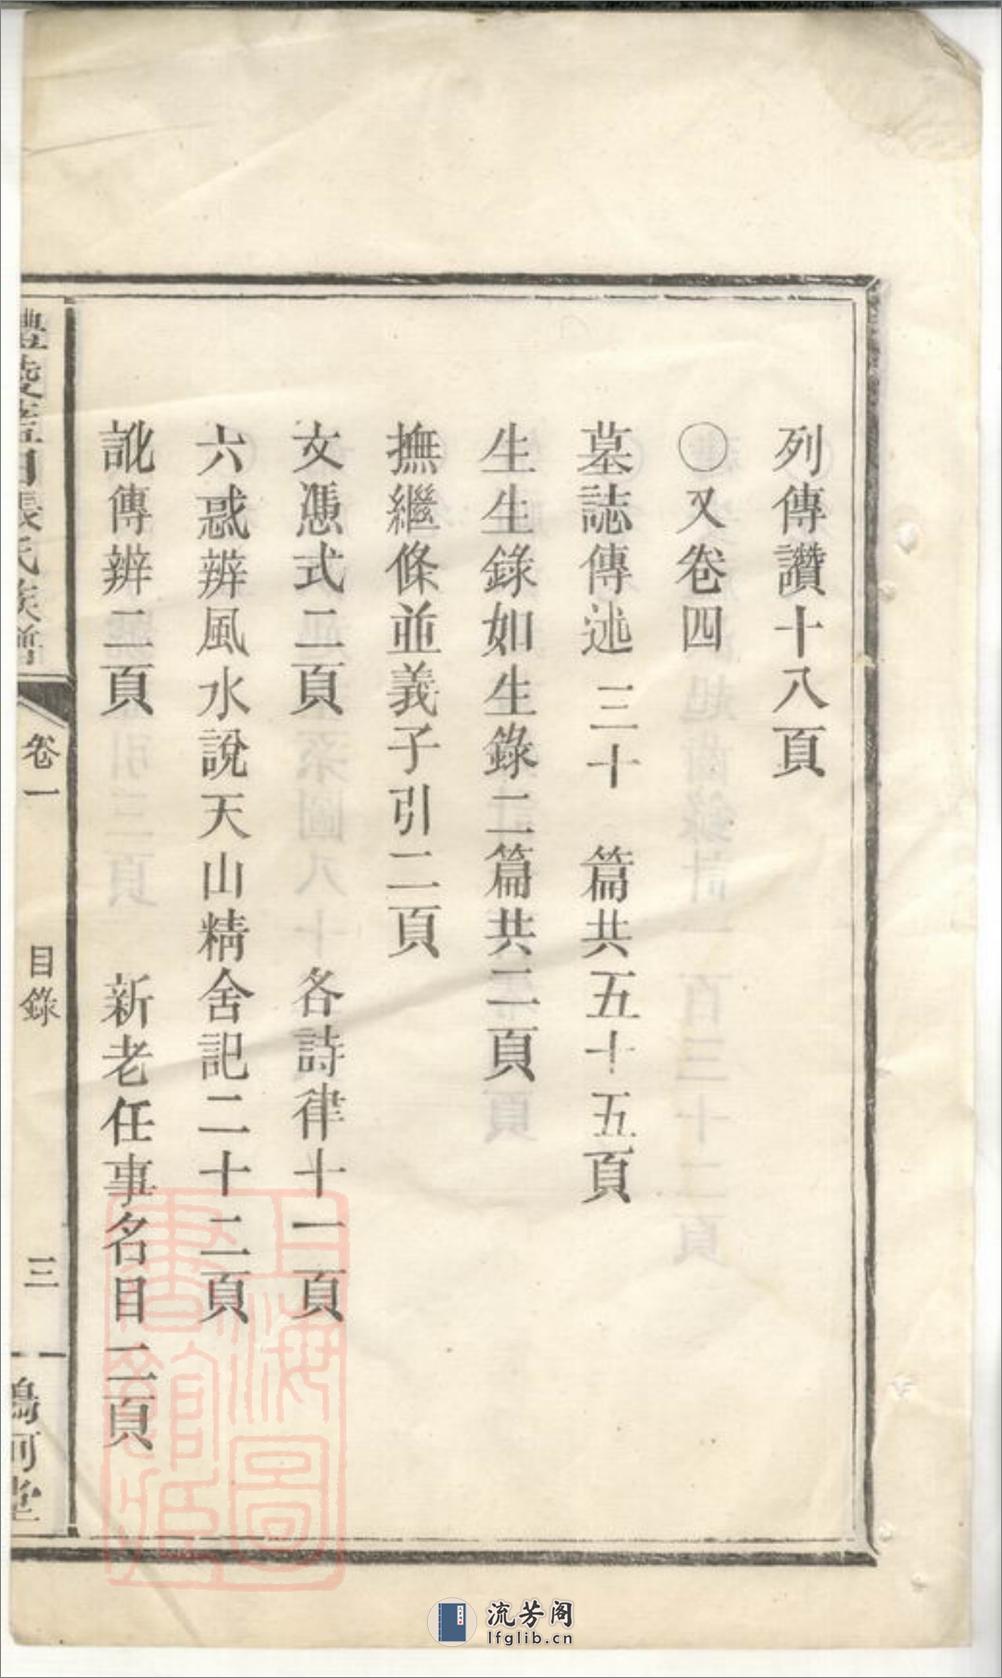 列傳讚十八頁
〇又卷四
墓誌傳述 三十 篇共五十五頁
生生錄如生錄二篇共二頁
撫繼條並義子引二頁
文憑式二頁 各詩律十一頁
六惑辨風水說天山精舍記二十二頁
訛傳辨二頁 新老任事名目二頁
醴陵藍田張氏族譜
卷一
目錄
三
河堂
上海圖書館藏
流芳阁
lfglib.cn